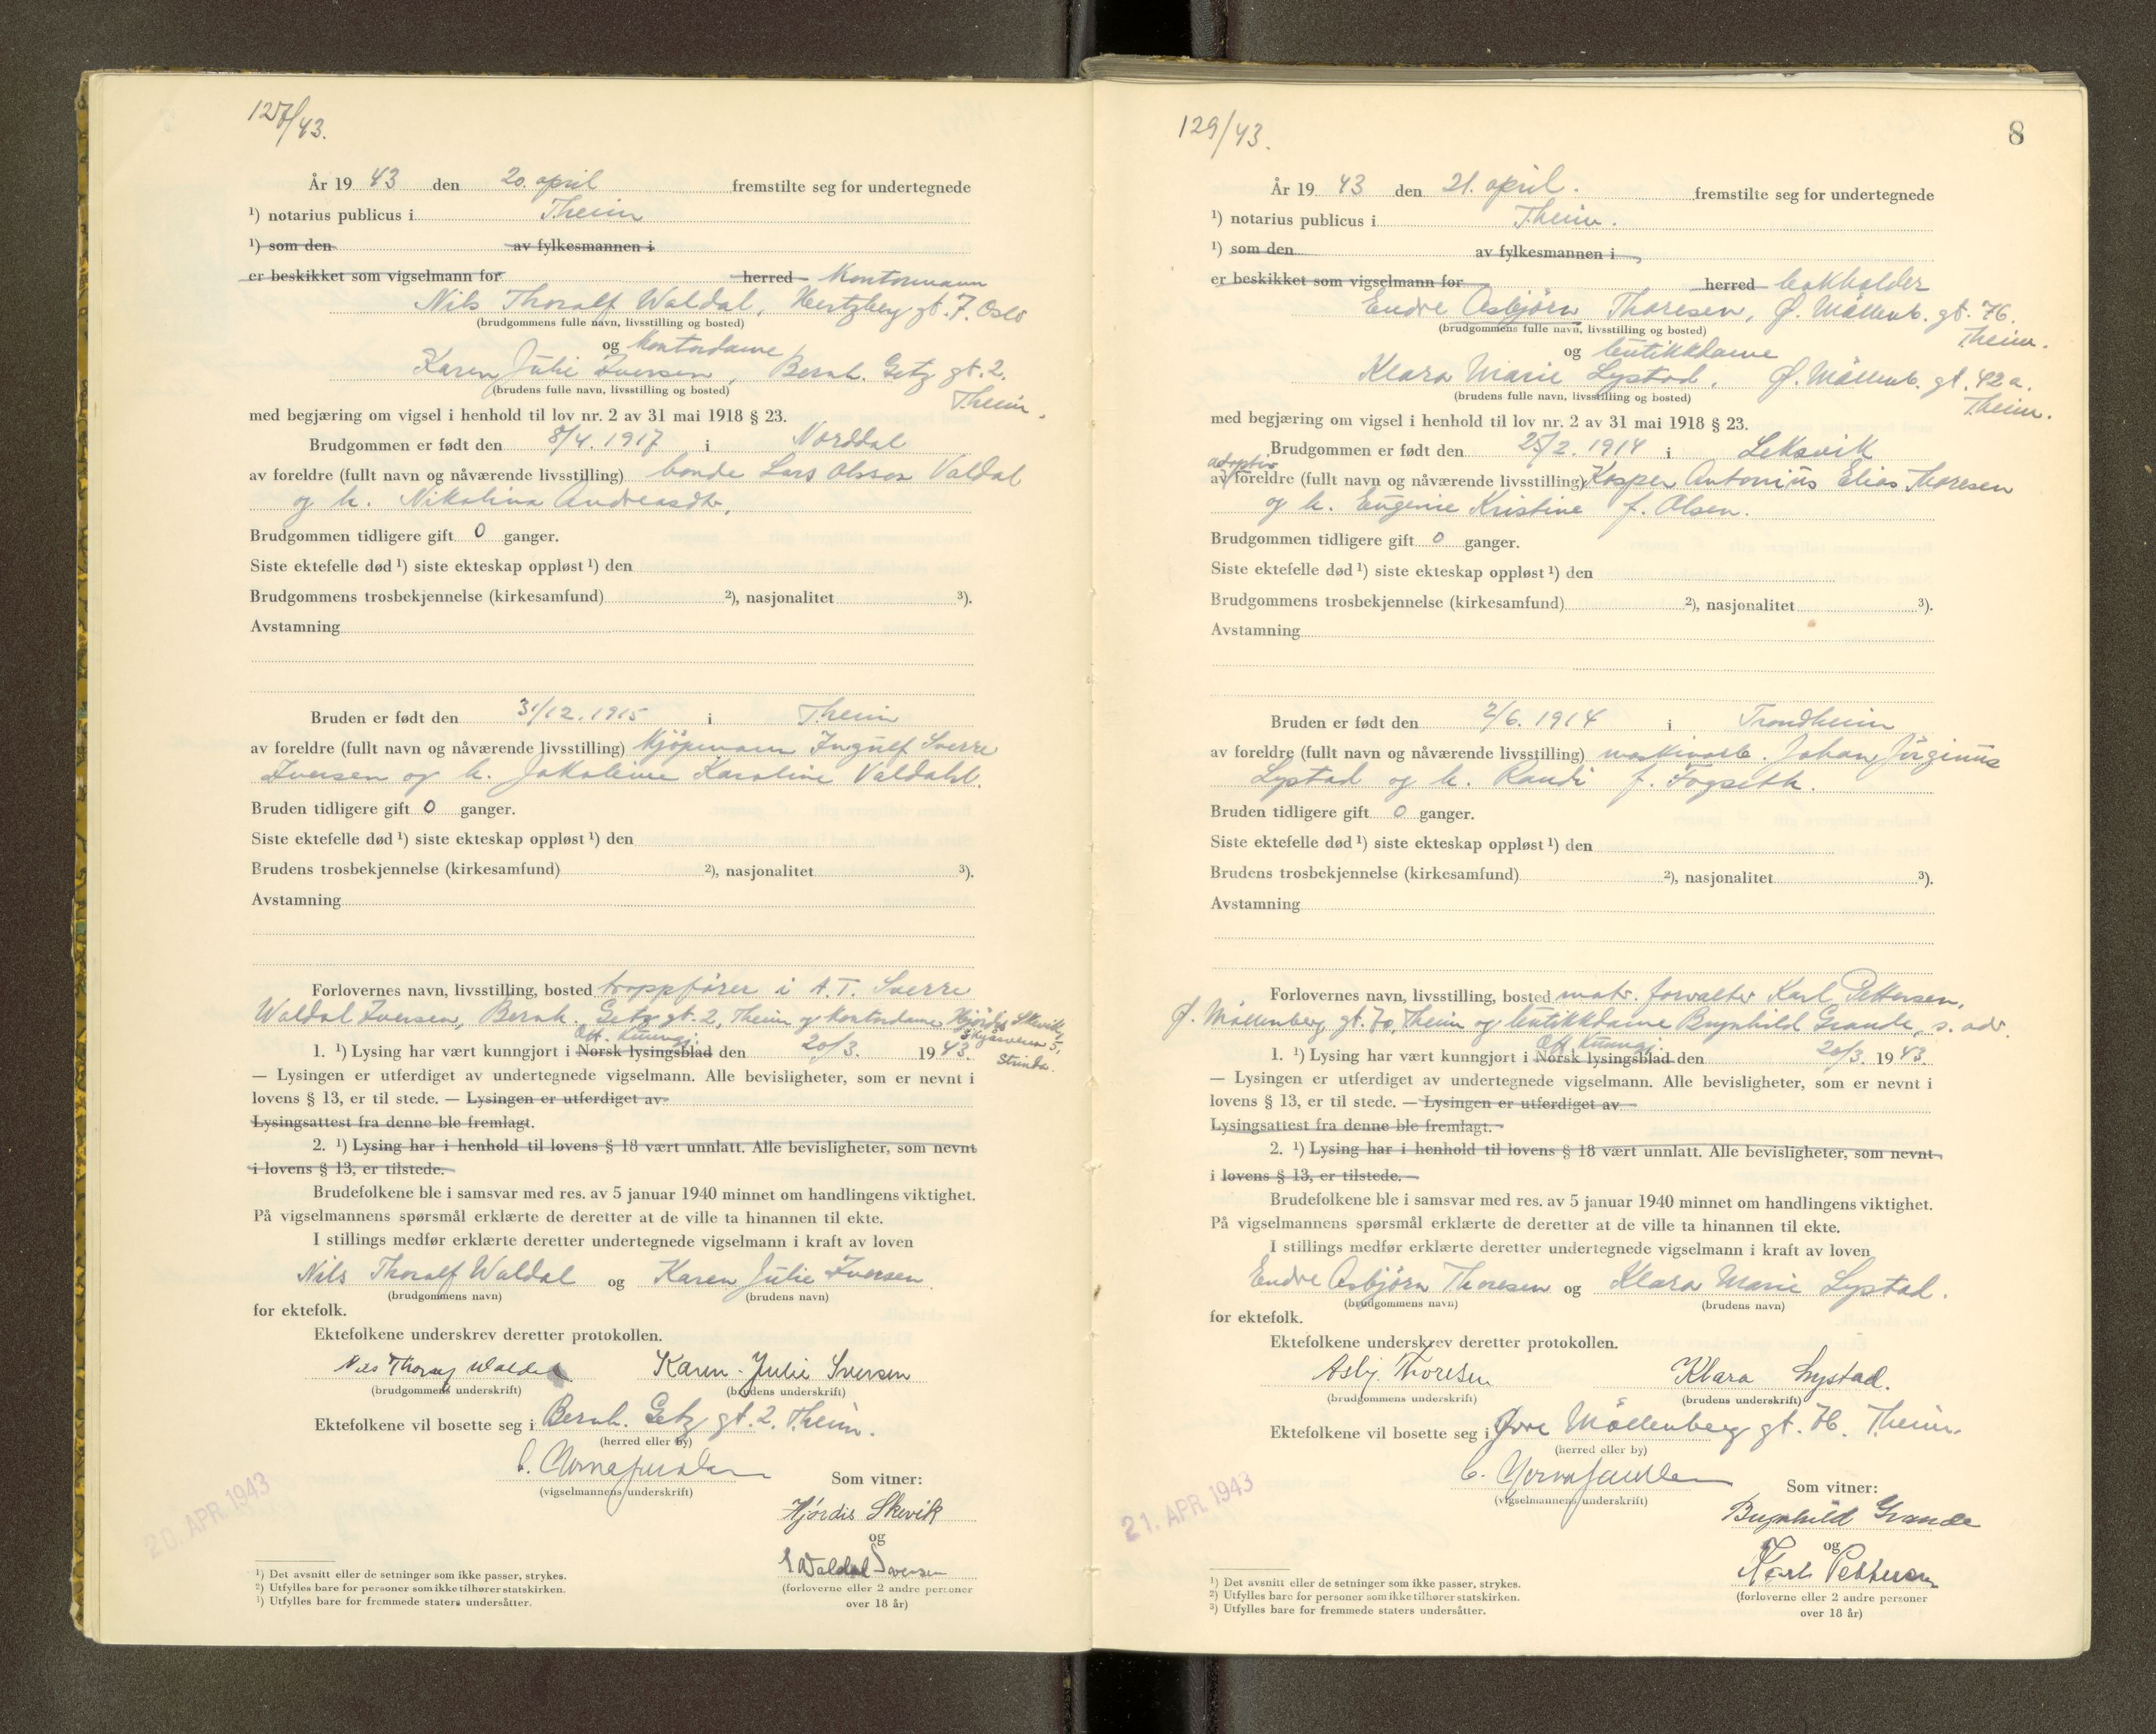 127/43.
År 19 43 den 20. april fremstilte seg for undertegnede
¹) notarius publicus i T.heim
¹) som den av fylkesmannen i
er beskikket som vigselmann for herred Kontormann
Nils Thoralf Waldal, Hertzberg gt. 7. Oslo
(brudgommens fulle navn, livsstilling og bosted)
og Kontordame
Karen Julie Iversen, Bernh. Getz gt. 2.
(brudens fulle navn, livsstilling og bosted)
T.heim.
med begjæring om vigsel i henhold til lov nr. 2 av 31 mai 1918 § 23.
Brudgommen er født den 8/4. 1917 i Norddal
av foreldre (fullt navn og nåværende livsstilling) bonde Lars Olsson Valdal
og h. Nikolina Andreasdtr.
Brudgommen tidligere gift 0 ganger.
Siste ektefelle død ¹) siste ekteskap oppløst ¹) den
Brudgommens trosbekjennelse (kirkesamfund) ²), nasjonalitet ³).
Avstamning
Bruden er født den 31/12. 1915 i T.heim
av foreldre (fullt navn og nåværende livsstilling) Kjöpmann Ingulf Sverre
Iversen og h. Jakobine Karoline Valdahl.
Bruden tidligere gift 0 ganger.
Siste ektefelle død ¹) siste ekteskap oppløst ¹) den
Brudens trosbekjennelse (kirkesamfund) ²), nasjonalitet ³).
Avstamning
Forlovernes navn, livsstilling, bosted troppförer i A.T. Sverre
Waldal Iversen, Bernh. Getz gt. 2, T.heim og Kontordame Hjördis Skevik,
5, Strinda.
Off. Kunngj.
1. ¹) Lysing har vært kunngjort i Norsk lysingsblad den 20/3. 19 43.
— Lysingen er utferdiget av undertegnede vigselmann. Alle bevisligheter, som er nevnt i
lovens § 13, er til stede. — Lysingen er utferdiget av
Lysingsattest fra denne ble fremlagt.
2. ¹) Lysing har i henhold til lovens § 18 vært unnlatt. Alle bevisligheter, som nevnt
i lovens § 13, er tilstede.
Brudefolkene ble i samsvar med res. av 5 januar 1940 minnet om handlingens viktighet.
På vigselmannens spørsmål erklærte de deretter at de ville ta hinannen til ekte.
I stillings medfør erklærte deretter undertegnede vigselmann i kraft av loven
Nils Thoralf Waldal og Karen Julie Iversen
(brudgommens navn) (brudens navn)
for ektefolk.
Ektefolkene underskrev deretter protokollen.
Nils Thoralf Waldal Karen-Julie Iversen
(brudgommens underskrift) (brudens underskrift)
Ektefolkene vil bosette seg i Bernh. Getz gt. 2. T.heim.
(herred eller by)
(vigselmannens underskrift)
Som vitner:
Hjördis Skevik
og
S Waldal Iversen
(forloverne eller 2 andre personer
over 18 år)
20. APR. 1943
¹) Det avsnitt eller de setninger som ikke passer, strykes.
²) Utfylles bare for personer som ikke tilhører statskirken.
³) Utfylles bare for fremmede staters undersåtter.
129/43.
8
År 19 43 den 21. april. fremstilte seg for undertegnede
¹) notarius publicus i T.heim.
¹) som den av fylkesmannen i
er beskikket som vigselmann for herred bokholder
Endre Asbjörn Thoresen, Ø. Möllenb. gt. 76.
(brudgommens fulle navn, livsstilling og bosted)
T.heim.
og butikkdame
Klara Marie Lystad, Ø. Möllenb. gt. 42a.
(brudens fulle navn, livsstilling og bosted)
T.heim.
med begjæring om vigsel i henhold til lov nr. 2 av 31 mai 1918 § 23.
Brudgommen er født den 25/2. 1914 i Leksvik
adoptiv
av foreldre (fullt navn og nåværende livsstilling) Kasper Antonius Elias Thoresen
og h. Eugenie Kristine f. Olsen.
Brudgommen tidligere gift 0 ganger.
Siste ektefelle død ¹) siste ekteskap oppløst ¹) den
Brudgommens trosbekjennelse (kirkesamfund) ²), nasjonalitet ³).
Avstamning
Bruden er født den 2/6. 1914 i Trondheim
av foreldre (fullt navn og nåværende livsstilling) maskinarb. Johan Jörginus
Lystad og h. Randi f. Fogseth.
Bruden tidligere gift 0 ganger.
Siste ektefelle død ¹) siste ekteskap oppløst ¹) den
Brudens trosbekjennelse (kirkesamfund) ²), nasjonalitet ³).
Avstamning
Forlovernes navn, livsstilling, bosted matr. forvalter Karl Pettersen,
Ø. Möllenberg gt. 70, T.heim og butikkdame Brynhild Grande, s. adr.
Off. Kunngj.
1. ¹) Lysing har vært kunngjort i Norsk lysingsblad den 20/3. 19 43.
— Lysingen er utferdiget av undertegnede vigselmann. Alle bevisligheter, som er nevnt i
lovens § 13, er til stede. — Lysingen er utferdiget av
Lysingsattest fra denne ble fremlagt.
2. ¹) Lysing har i henhold til lovens § 18 vært unnlatt. Alle bevisligheter, som nevnt
i lovens § 13, er tilstede.
Brudefolkene ble i samsvar med res. av 5 januar 1940 minnet om handlingens viktighet.
På vigselmannens spørsmål erklærte de deretter at de ville ta hinannen til ekte.
I stillings medfør erklærte deretter undertegnede vigselmann i kraft av loven
Endre Asbjörn Thoresen og Klara Marie Lystad.
(brudgommens navn) (brudens navn)
for ektefolk.
Ektefolkene underskrev deretter protokollen.
Asbj. Thoresen Klara Lystad.
(brudgommens underskrift) (brudens underskrift)
Ektefolkene vil bosette seg i Øvre Möllenberg gt. 76. T.heim.
(herred eller by)
(vigselmannens underskrift)
Som vitner:
Brynhild Grande
og
Karl Pettersen
(forloverne eller 2 andre personer
over 18 år)
21. APR. 1943
¹) Det avsnitt eller de setninger som ikke passer, strykes.
²) Utfylles bare for personer som ikke tilhører statskirken.
³) Utfylles bare for fremmede staters undersåtter.